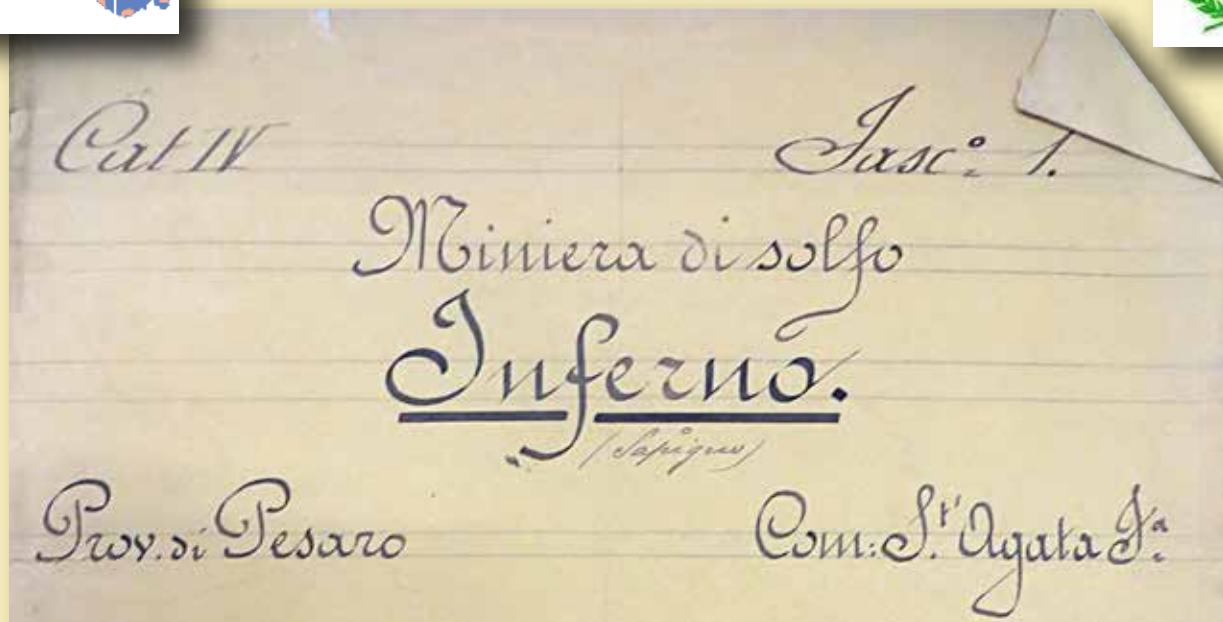 Cat IV Fasc.º 1.
Miniera di solfo
Inferno.
(Sapigno)
Prov. di Pesaro Com: S.t' Agata F.a